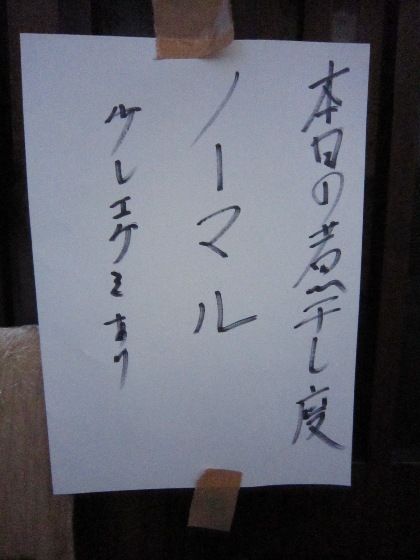 本日の煮干し度
ノーマル
少しエグミあり